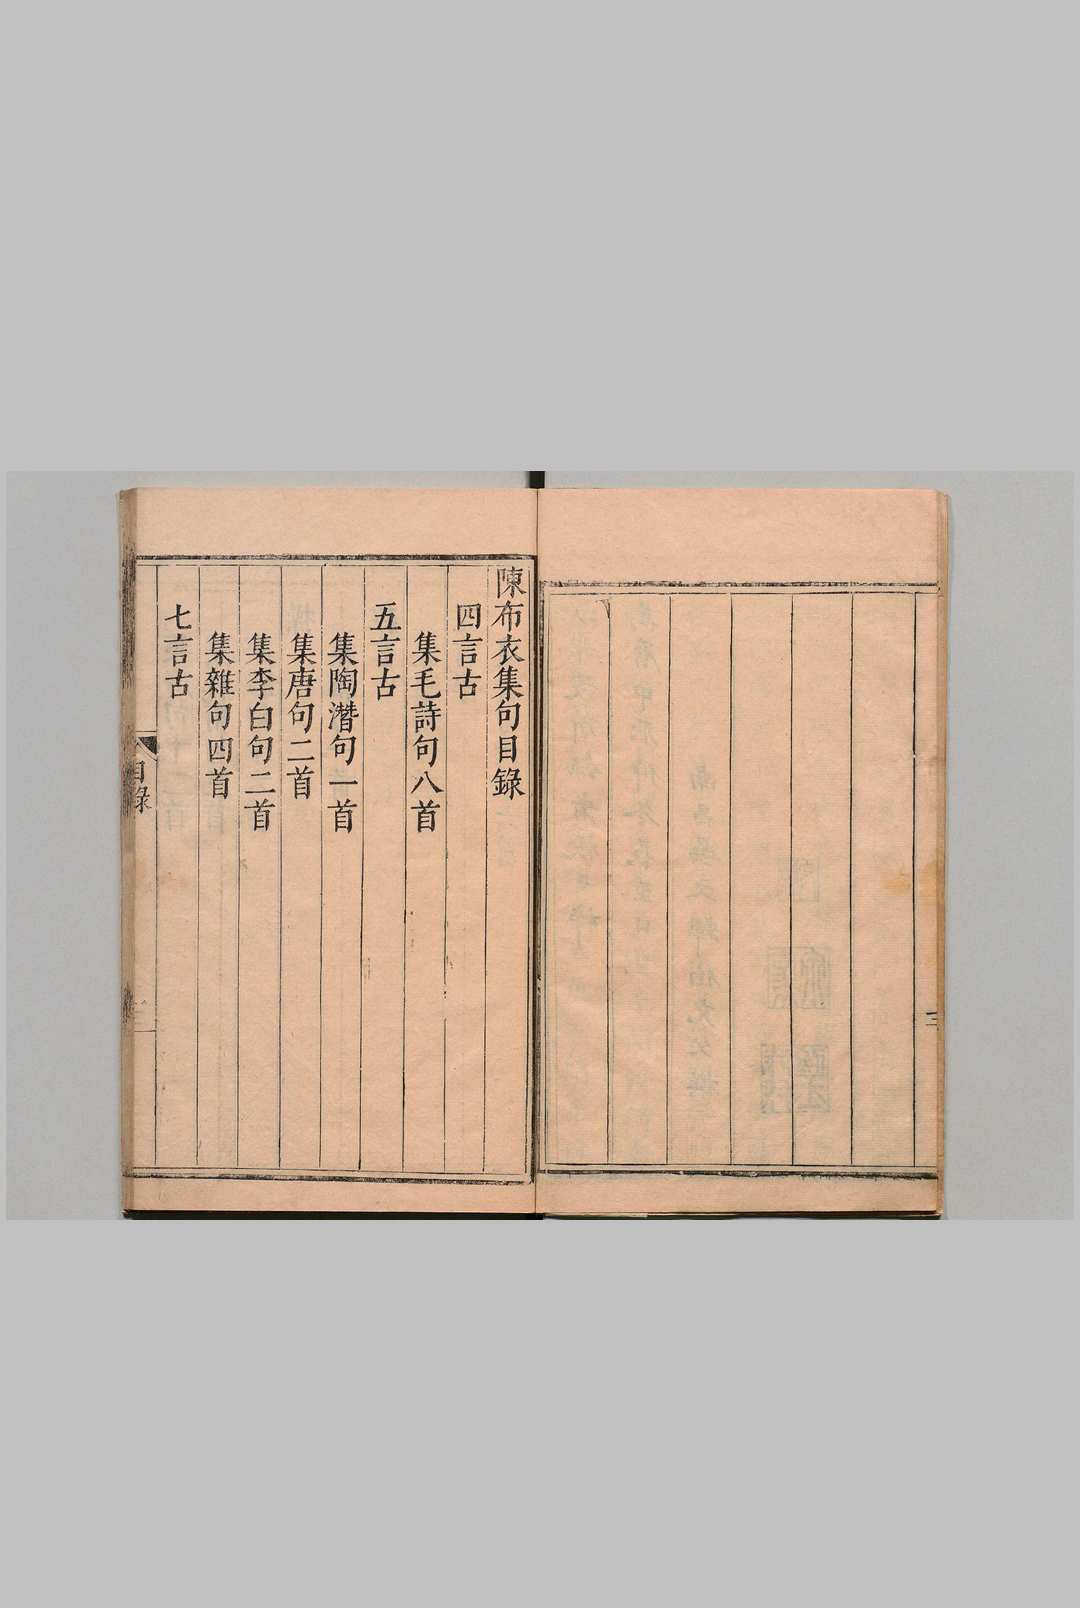 陳布衣集句目錄
四言古
集毛詩句八首
五言古
集陶潛句一首
集唐句二首
集李白句二首
集雜句四首
七言古
目錄